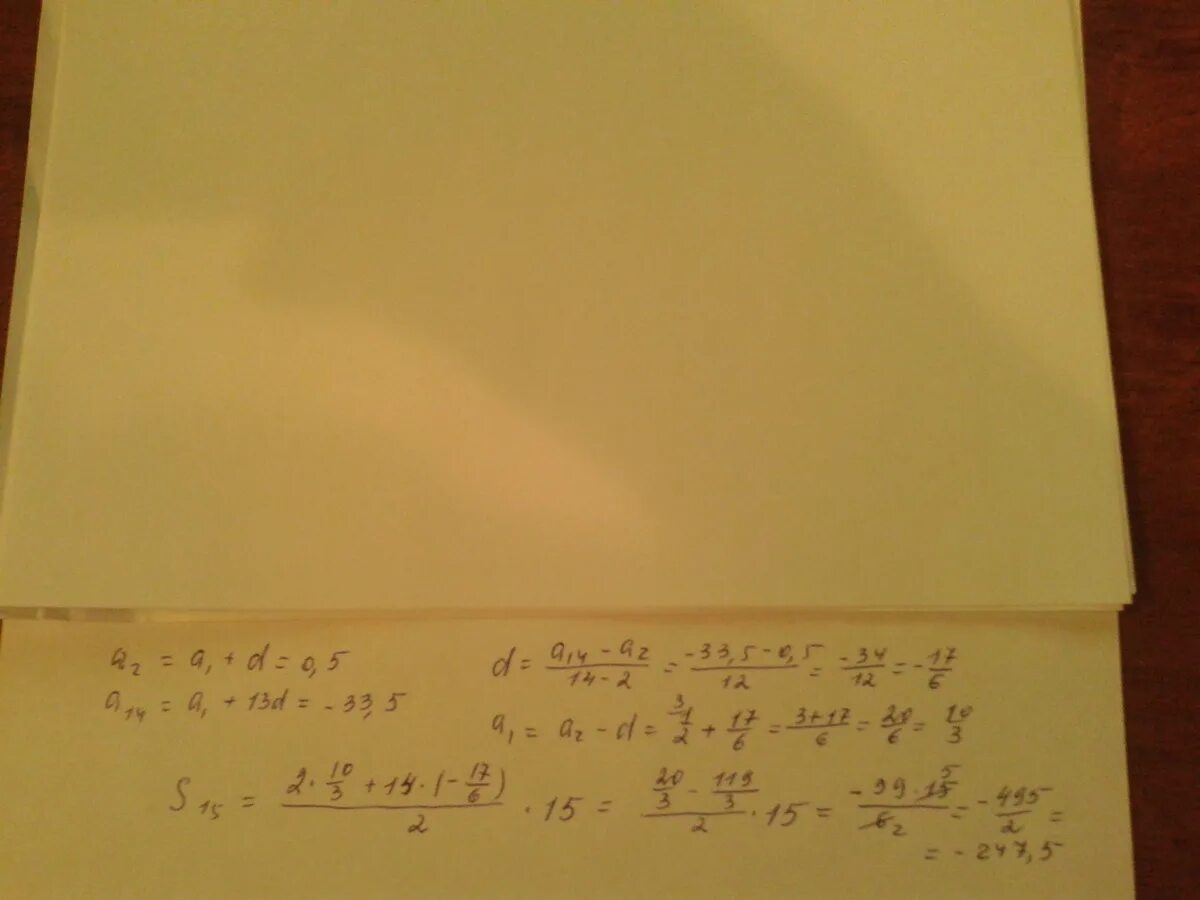 a₂ = a₁ + d = 0,5
a₁₄ = a₁ + 13d = -33,5
d = (a₁₄ - a₂)/(14 - 2) = (-33,5 - 0,5)/12 = -34/12 = -17/6
a₁ = a₂ - d = ³1/2 + 17/6 = (3+17)/6 = 20/6 = 10/3
S₁₅ = (2 · 10/3 + 14 · (-17/6))/2 · 15 = (20/3 - 119/3)/2 · 15 = (-99 · 15⁵)/(6₂) = -495/2 =
= -247,5